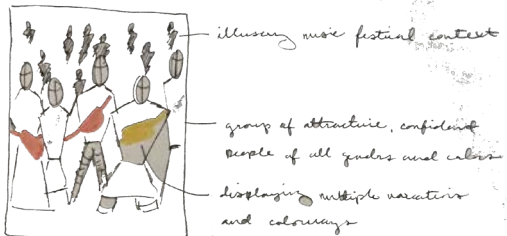 illusory music festival context
group of attractive, confident
people of all genders and colors
displaying multiple variations
and colorways